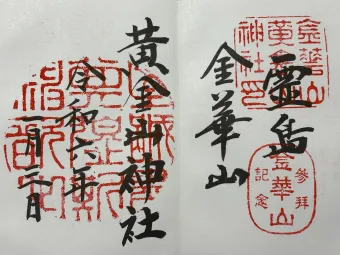 金華山
黄金山
神社之印
靈島
金華山
参拝
記念
金華山
黄金山神社
令和六年
一月二日